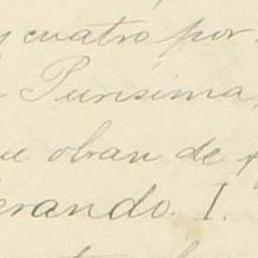 y cuatro por
Purisima,
ue obran de f
erando. I.